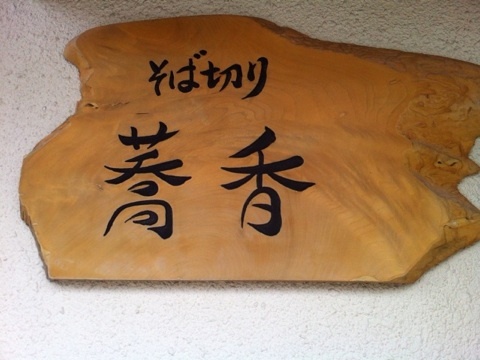 そば切り
蕎香